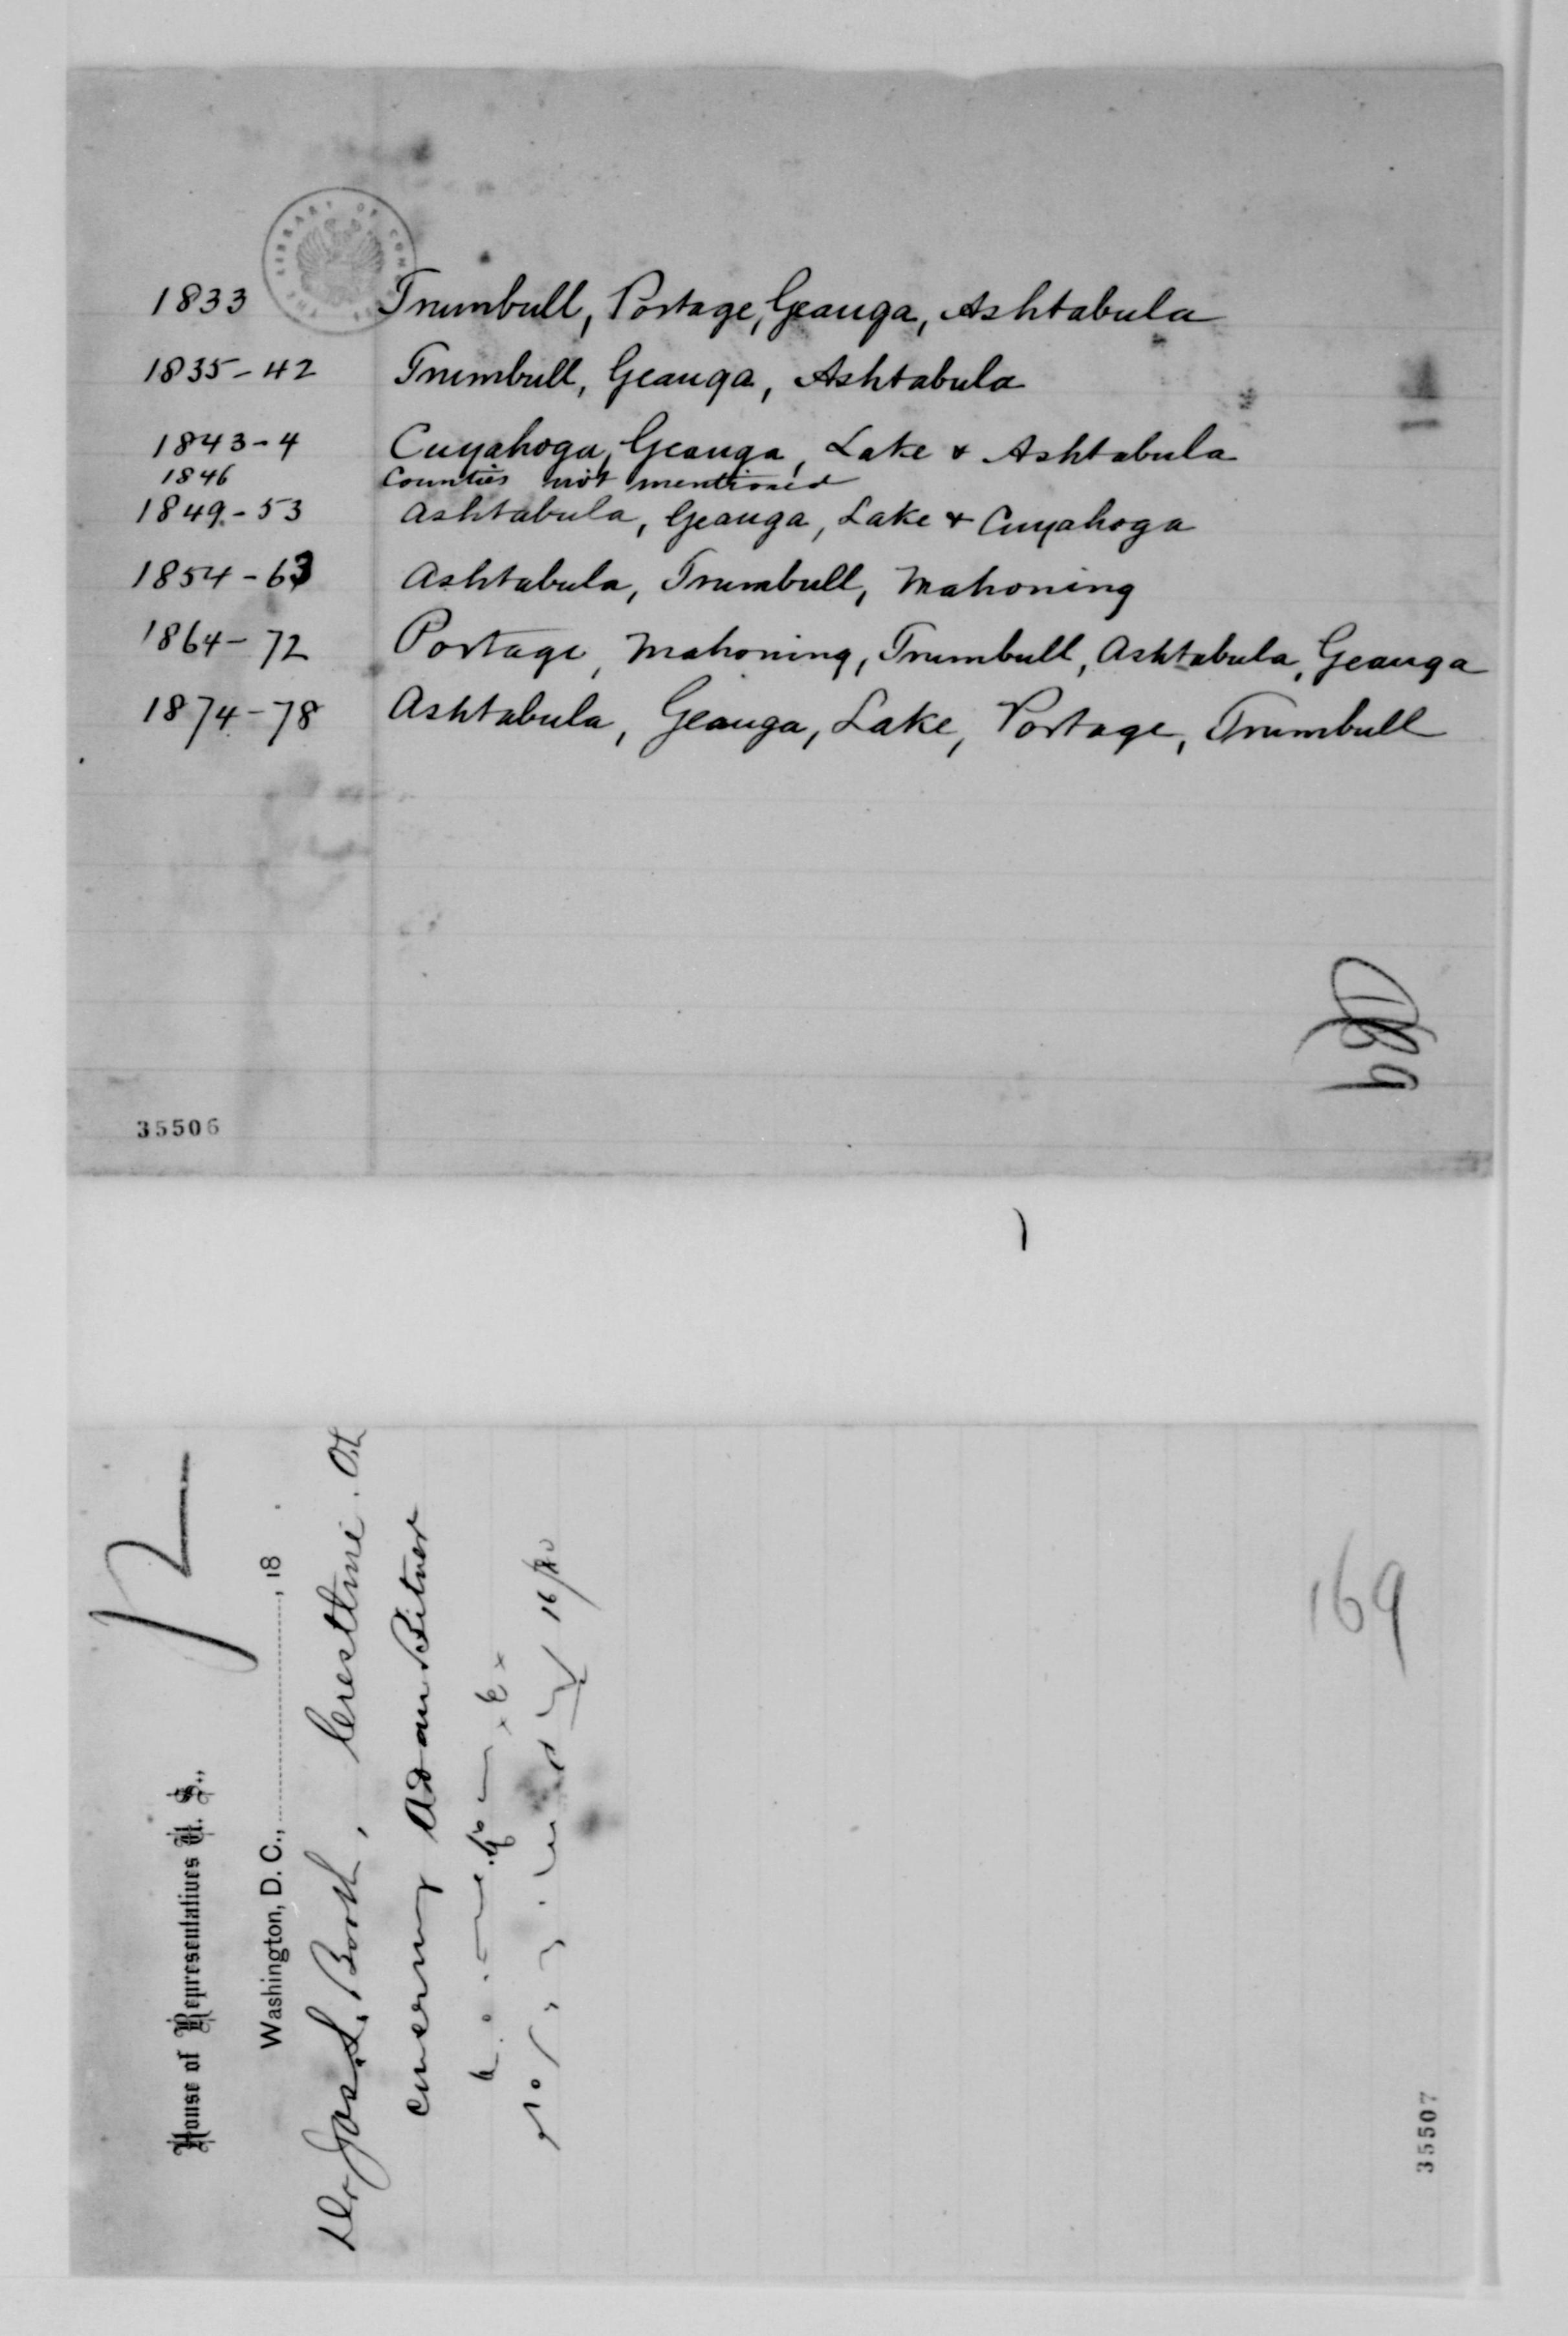 THE LIBRARY OF CONGRESS
1833 Trumbull, Portage, Geauga, Ashtabula
1835-42 Trumbull, Geauga, Ashtabula
1843-4 Cuyahoga, Geauga, Lake & Ashtabula
1846 Counties not mentioned
1849-53 Ashtabula, Geauga, Lake & Cuyahoga
1854-63 Ashtabula, Trumbull, Mahoning
1864-72 Portage, Mahoning, Trumbull, Ashtabula, Geauga
1874-78 Ashtabula, Geauga, Lake, Portage, Trumbull
35506
12
House of Representatives U. S.,
Washington, D. C., 18
Dr Jas. L. Booth, Crestline. Oh
Adam Bitner
169
35507